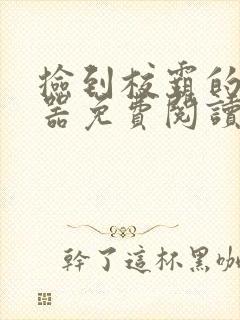 撿到校霸的
器免費閱讀
幹了這杯黑咖